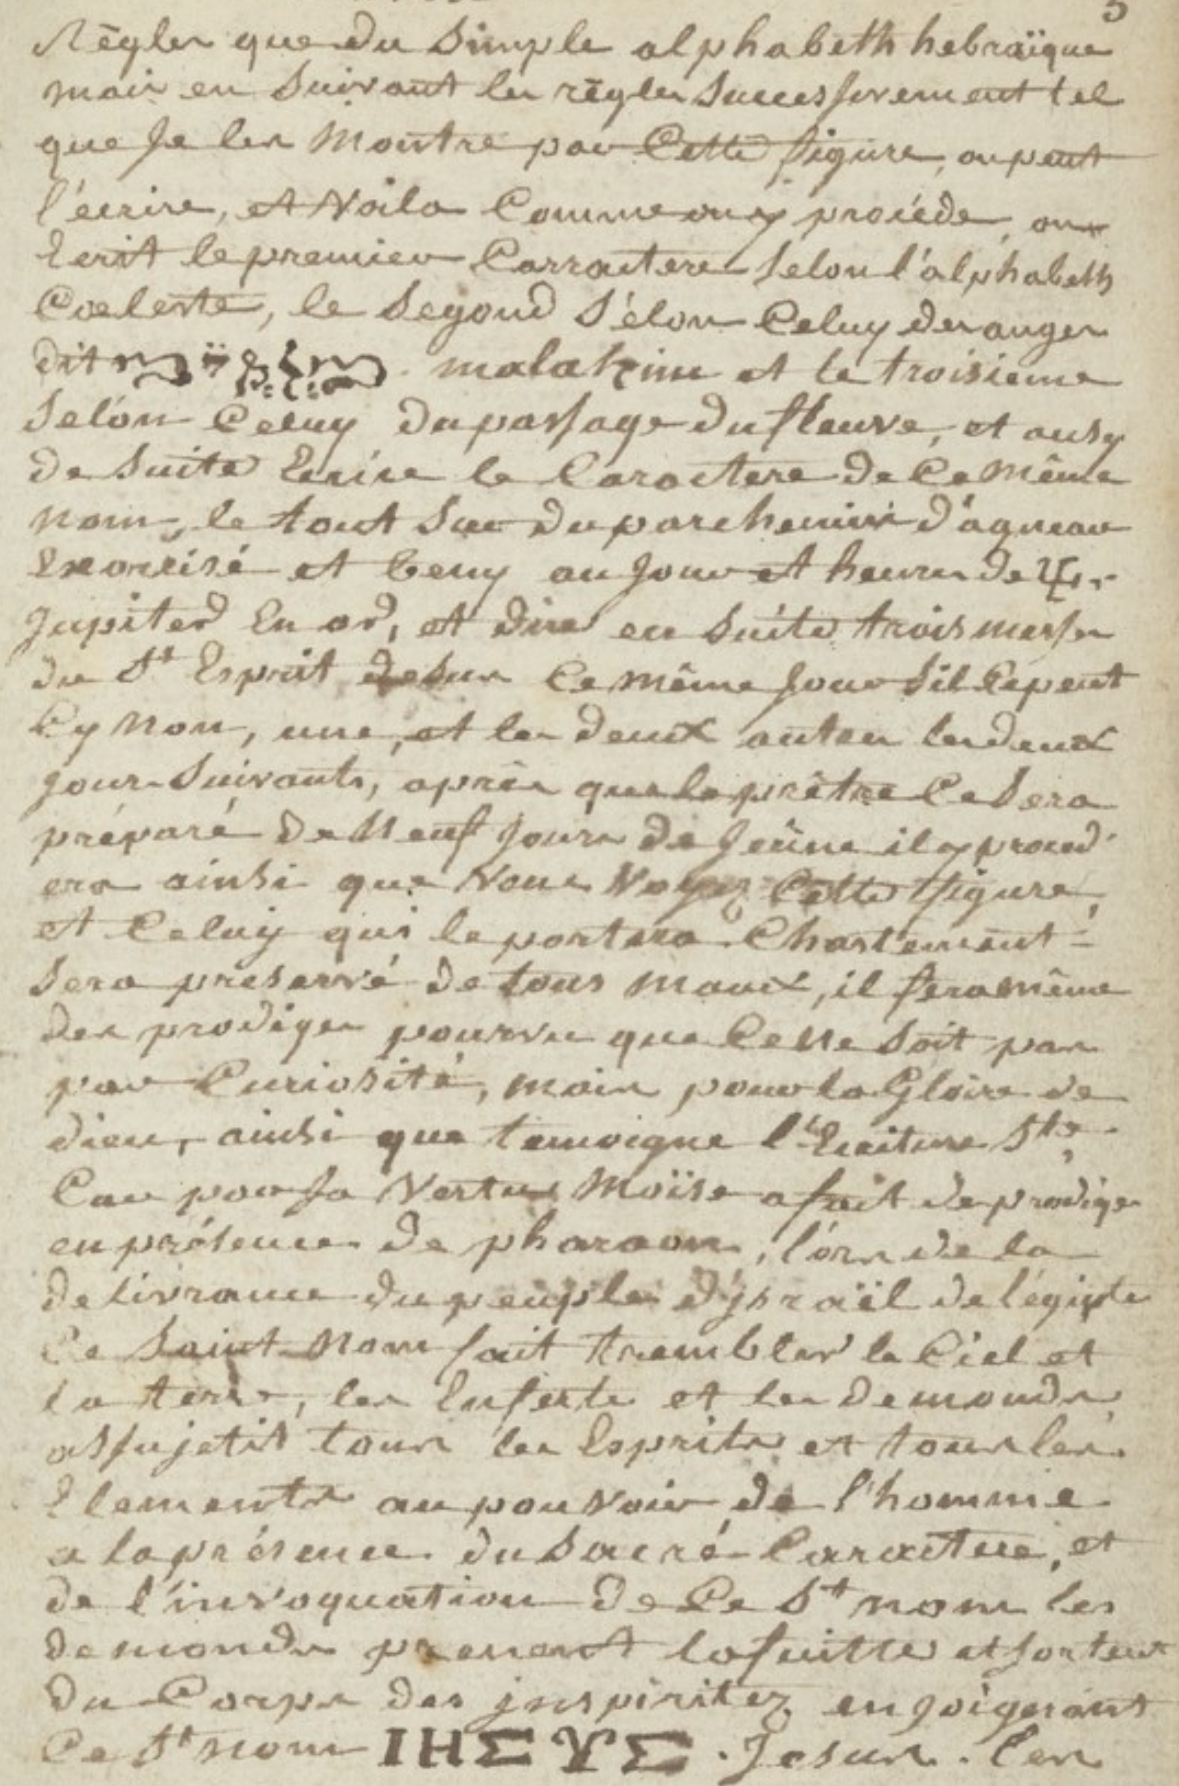 5
Règles que du Simple alphabeth hebraïque
mais en Suivant les règles Successivement tel
que Je les Montre par Cette figure, on peut
l'écrire, et Voila Comme on y procéde, on
Ecrit le premier Carractere Selon l'alphabeth
Cœleste, le Segond Sélon Celuy des anges
dit malahim et le troisieme
Selon Celuy du passage du fleuve, et ausy
de Suite Ecrire le Caractere de Ce Même
nom, le tout Sur du parchemin d'agneau
Exorcisé et beny au Jour et heure de ♃
Jupiter En or, et dire en Suite trois messes
du St Esprit Ce même Jour S'il Ce peut
Cy Non, une, et les deux autres les deux
Jours Suivants, après que le prêtre Ce Sera
préparé de Neuf Jours de Jeûne il y proced-
era ainsi que Vous Voyez Cette figure,
et Celuy qui le portera Chastement
Sera preservé de tous maux, il fera même
des prodiges pourvu que Ce ne Soit pas
par Curiosité, mais pour la Gloire de
dieu, ainsi que temoigne l'Ecriture Ste
Car par Sa Vertu Moïse a fait de prodiges
en présence de pharaon, lors de la
delivrance du peuple d'jsraïl de l'égipte
Ce Saint Nom fait trembler le Ciel et
la terre, les Enferts et les demonds
assujetit tous les Esprits et tous les
Elements au pouvoir de l'homme
a la présence du Sacré Caractere, et
de l'invoquation de Ce St nom les
demonds prenent la fuitte et sortent
du Corps des jnspiritez en joignant
Ce St nom ΙΗΣΥΣ . Jesus . les